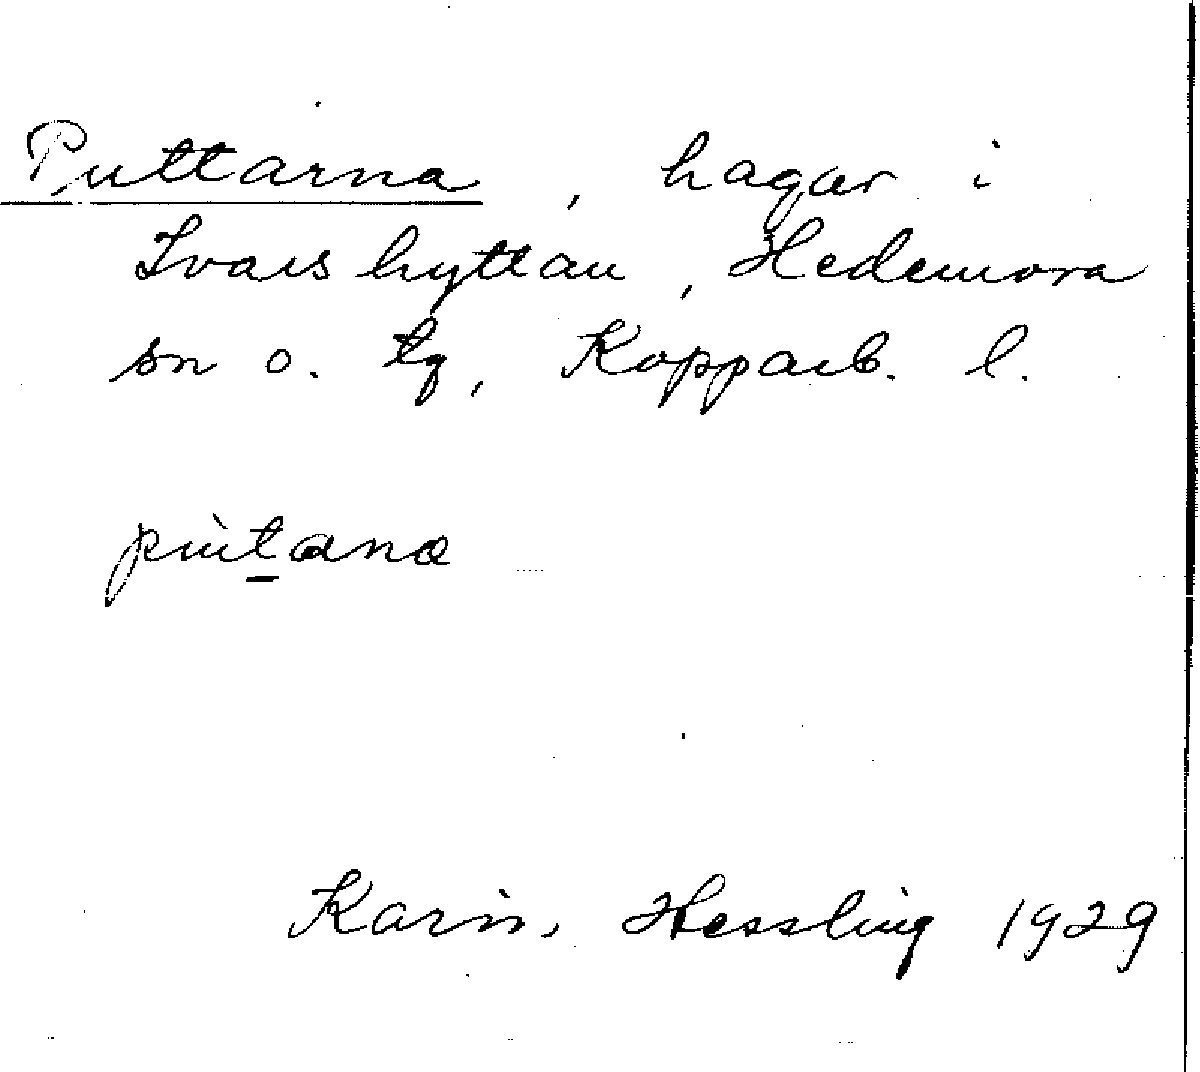 Puttarna, hagar i
Ivarshyttan, Hedemora
sn o. tg, Kopparb. l.
pùtana
Karin Hessling 1929